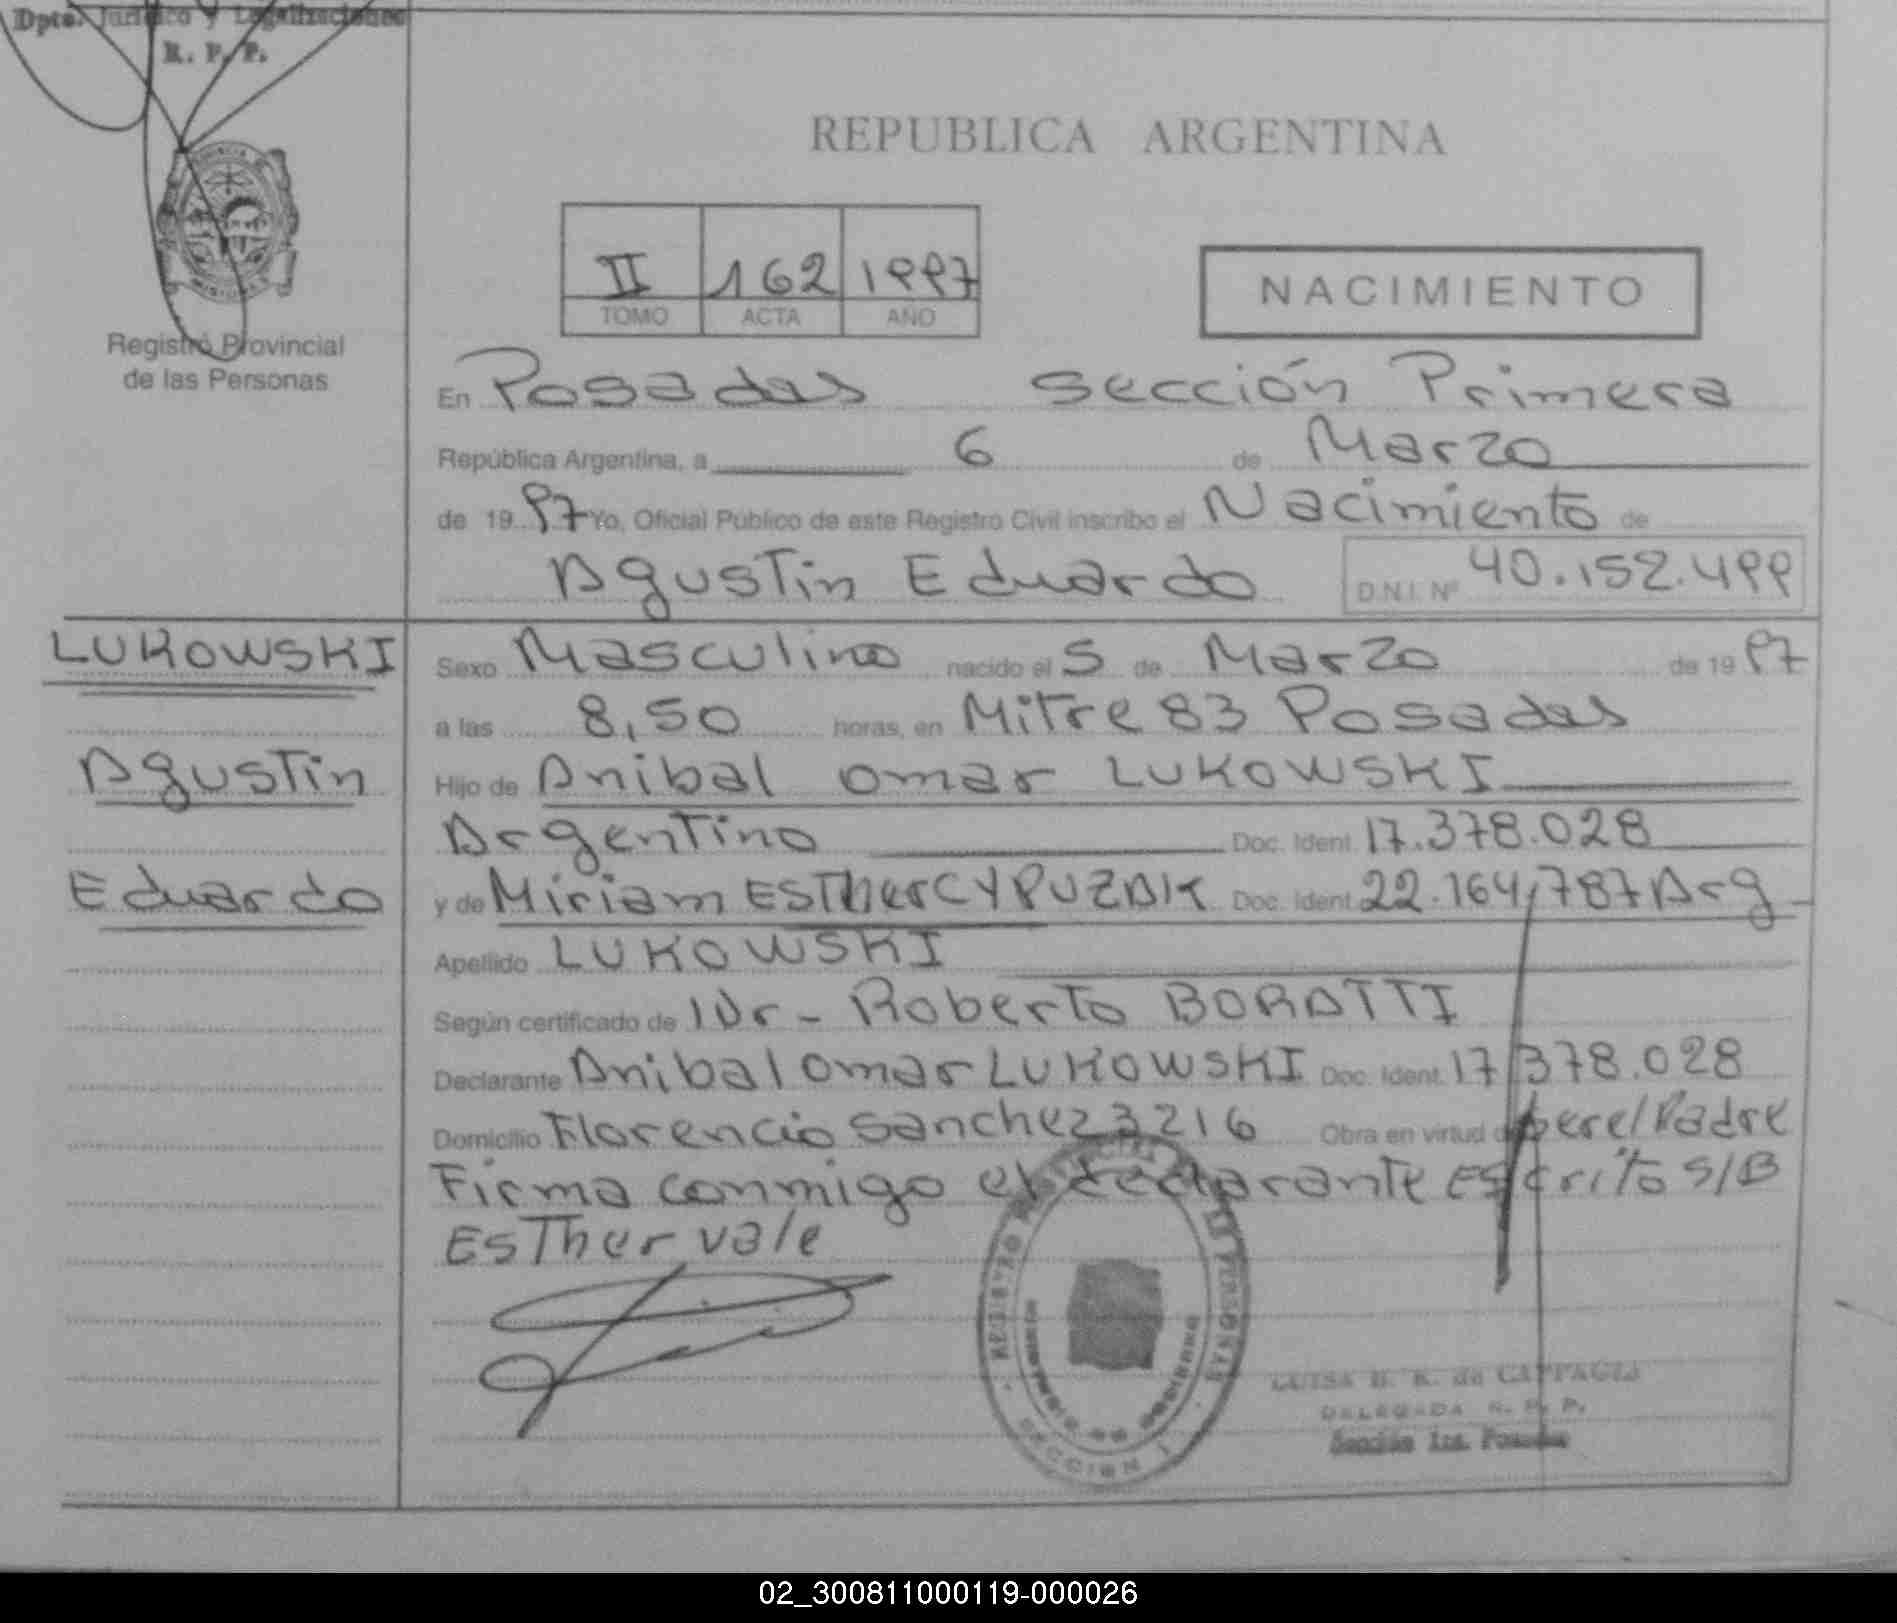 Dpto. Jurídico y Legalizaciones
R. P. P.
MISIONES
Registro Provincial
de las Personas
REPUBLICA ARGENTINA
II 162 1997
TOMO ACTA AÑO
NACIMIENTO
En Posadas sección Primera
República Argentina, a 6 de Marzo
de 1997 Yo, Oficial Público de este Registro Civil inscribo el Nacimiento de
Agustin Eduardo D.N.I. Nº 40.152.499
LUKOWSKI
Agustin
Eduardo
Sexo Masculino nacido el 5 de Marzo de 1997
a las 8,50 horas, en Mitre 83 Posadas
Hijo de Anibal Omar LUKOWSKI
Argentino Doc. Ident. 17.378.028
y de Miriam ESTher CYPUZAK Doc. Ident. 22.164,787 Arg
Apellido LUKOWSKI
Según certificado de Dr - Roberto BORATTI
Declarante Anibal Omar LUKOWSKI Doc. Ident. 17.378.028
Domicilio Florencio Sanchez 3216 Obra en virtud de ser el Padre
Firma conmigo el declarante Escrito S/B
EsTher vale
REGISTRO PROVINCIAL DE LAS PERSONAS
MINISTERIO DE GOBIERNO
SECCION 1
LUISA B. K. de CAPPAGLI
DELEGADA R. P. P.
Sección 1ra. Posadas
02_300811000119-000026